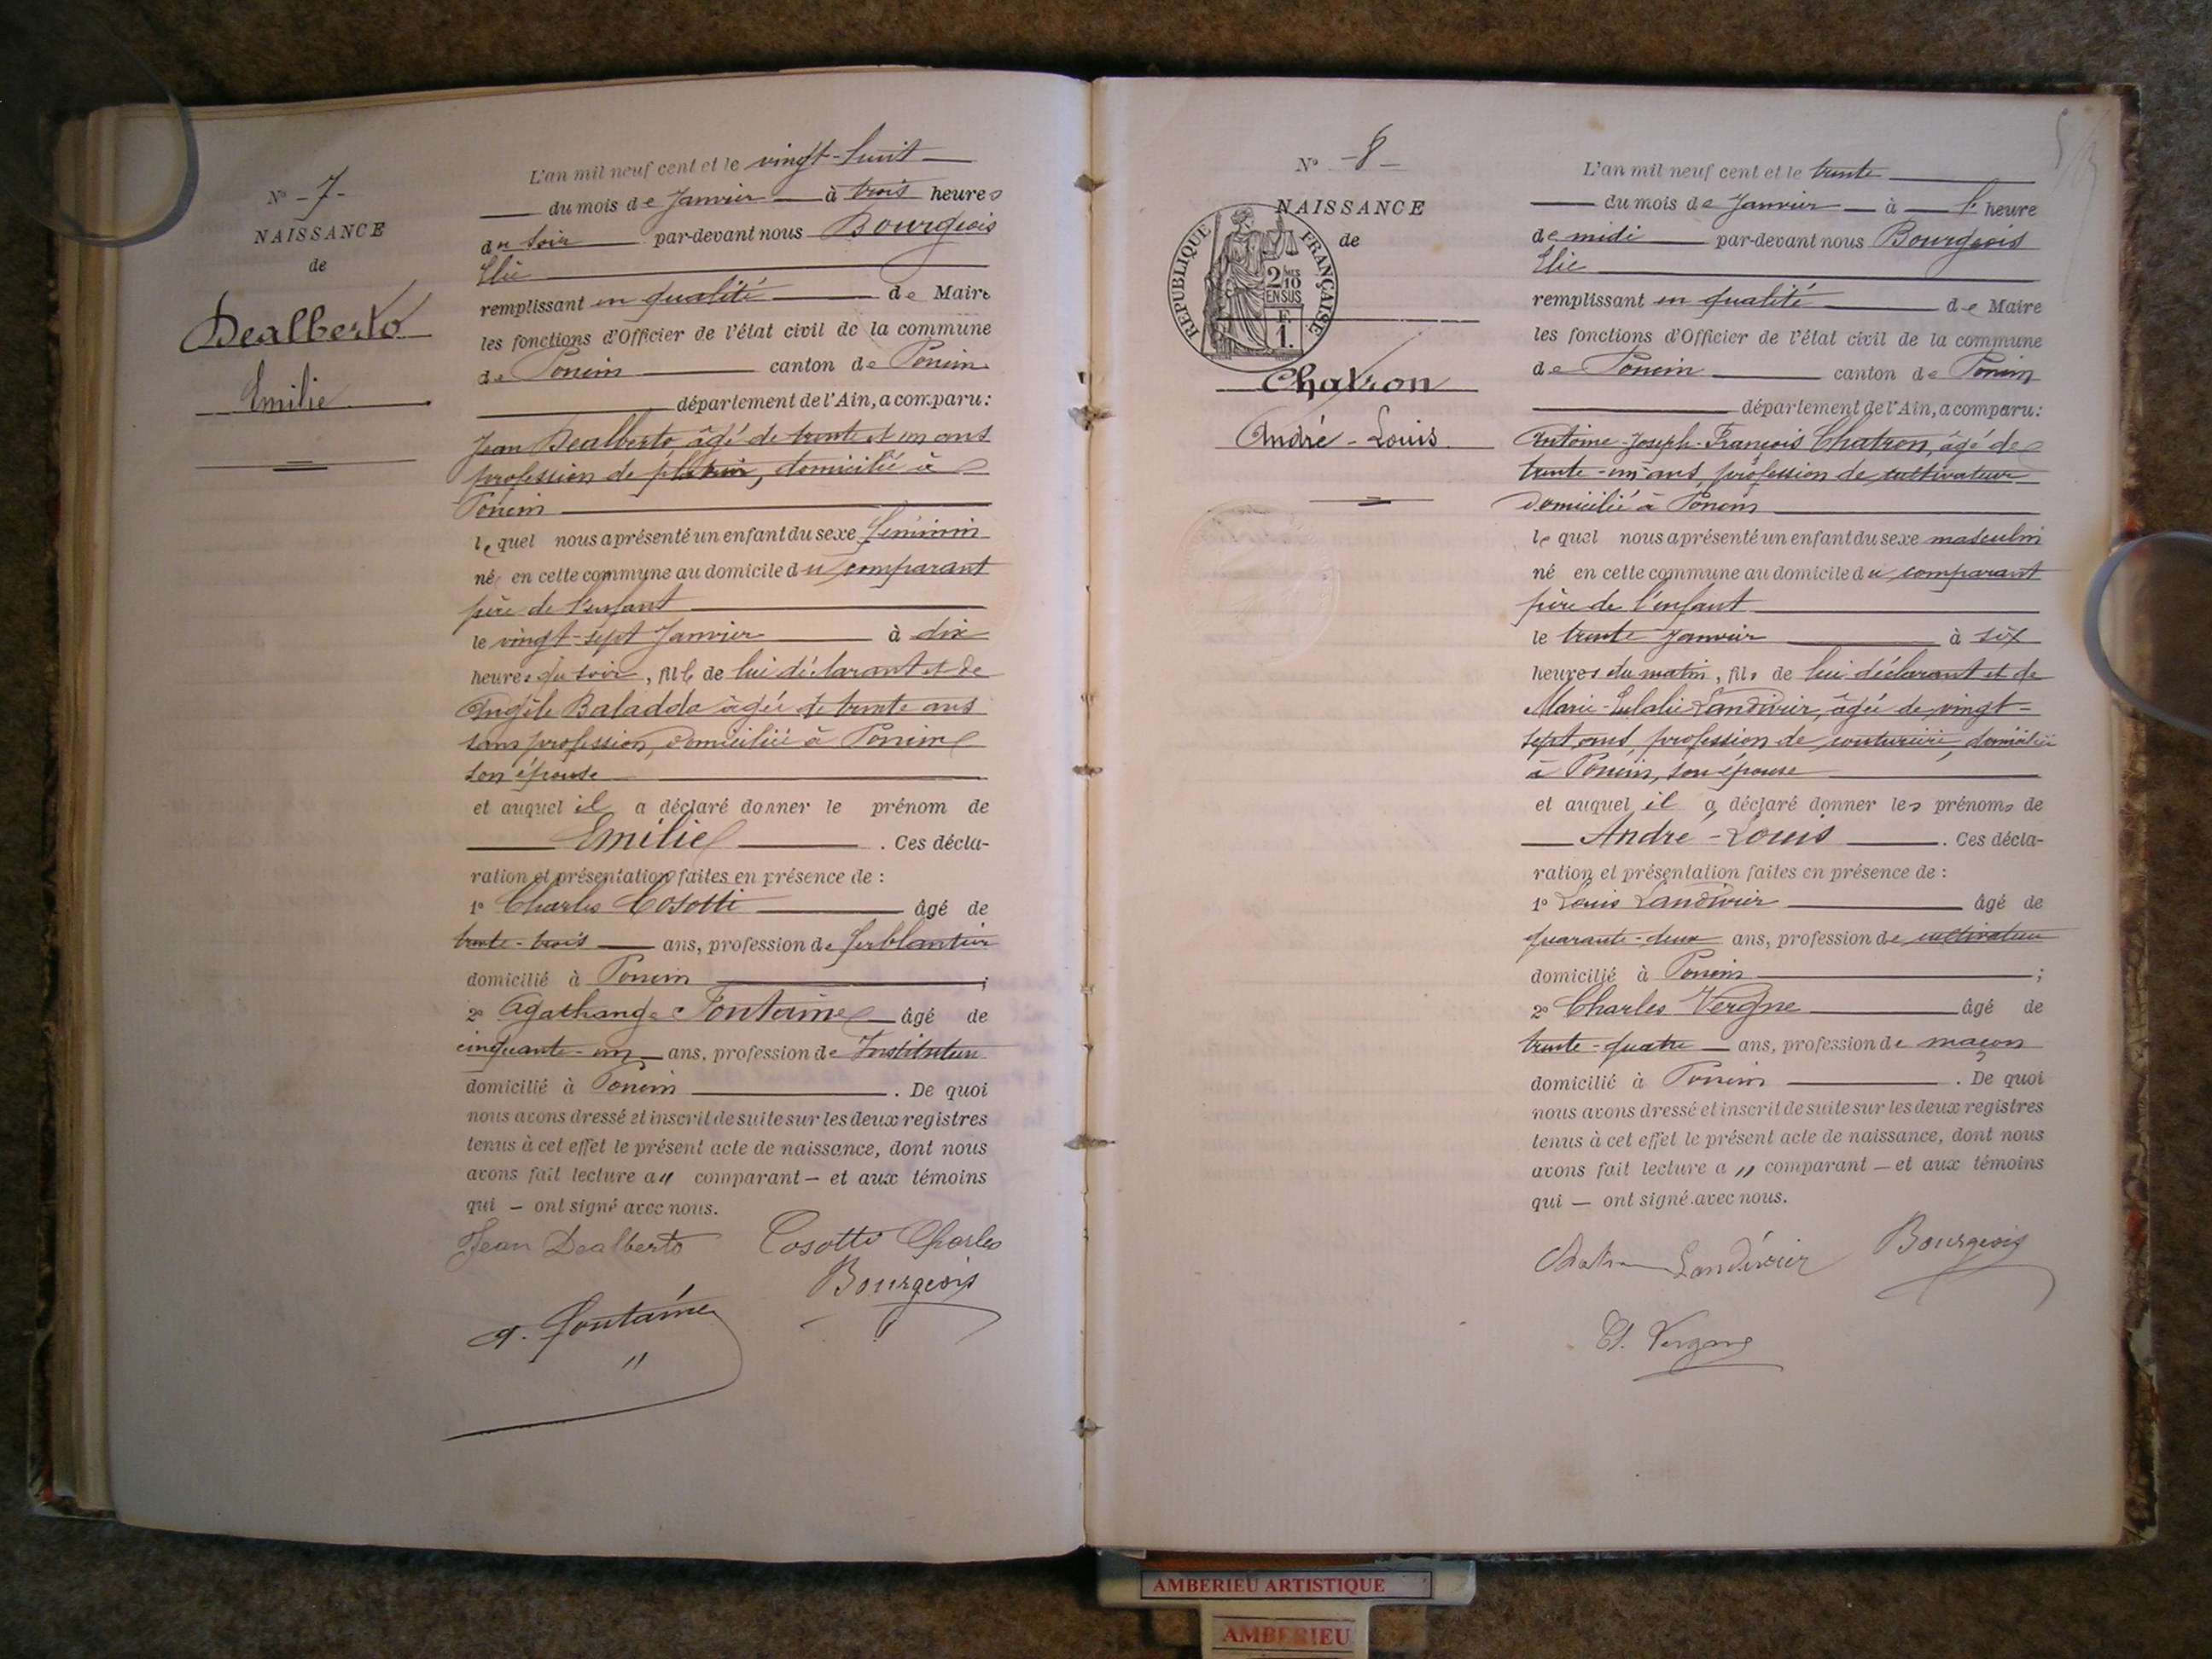 N° - 7 -
NAISSANCE
de
Dealberto
Emilie
L'an mil neuf cent et le vingt-huit
du mois de Janvier à trois heures
du soir par-devant nous Bourgeois
Elie
remplissant en qualité de Maire
les fonctions d'Officier de l'état civil de la commune
de Poncin canton de Poncin
département de l'Ain, a comparu:
Jean Dealberto, âgé de trente et un ans
profession de plâtrier, domicilié à
Poncin
lequel nous a présenté un enfant du sexe féminin
né en cette commune au domicile du comparant
père de l'enfant
le vingt-sept Janvier à dix
heures du soir, fille de lui déclarant et de
Angèle Baladda âgée de trente ans
sans profession, domiciliée à Poncin
son épouse
et auquel il a déclaré donner le prénom de
Emilie. Ces décla-
ration et présentation faites en présence de :
1° Charles Cosotti âgé de
trente-trois ans, profession de ferblantier
domicilié à Poncin ;
2° Agathange Fontaine âgé de
cinquante-un ans, profession de Instituteur
domicilié à Poncin. De quoi
nous avons dressé et inscrit de suite sur les deux registres
tenus à cet effet le présent acte de naissance, dont nous
avons fait lecture au comparant — et aux témoins
qui — ont signé avec nous.
Jean Dealberto Cosotti Charles
Bourgeois
A. Fontaine
N° - 8 -
NAISSANCE
de
RÉPUBLIQUE FRANÇAISE
2/10MES
EN SUS
F.
1.
Chatron
André-Louis
L'an mil neuf cent et le trente
du mois de Janvier à heure
de midi par-devant nous Bourgeois
Elie
remplissant en qualité de Maire
les fonctions d'Officier de l'état civil de la commune
de Poncin canton de Poncin
département de l'Ain, a comparu:
Antoine-Joseph-François Chatron, âgé de
trente-un ans, profession de cultivateur
domicilié à Poncin
lequel nous a présenté un enfant du sexe masculin
né en cette commune au domicile du comparant
père de l'enfant
le trente Janvier à six
heures du matin, fils de lui déclarant et de
Marie-Eulalie Landivier, âgée de vingt-
sept ans, profession de couturière, domiciliée
à Poncin, son épouse
et auquel il a déclaré donner les prénoms de
André-Louis. Ces décla-
ration et présentation faites en présence de :
1° Louis Landivier âgé de
quarante-deux ans, profession de cultivateur
domicilié à Poncin ;
2° Charles Vergne âgé de
trente-quatre ans, profession de maçon
domicilié à Poncin. De quoi
nous avons dressé et inscrit de suite sur les deux registres
tenus à cet effet le présent acte de naissance, dont nous
avons fait lecture a " comparant — et aux témoins
qui — ont signé avec nous.
Chatron Landivier Bourgeois
Ch. Vergne
AMBERIEU ARTISTIQUE
AMBERIEU